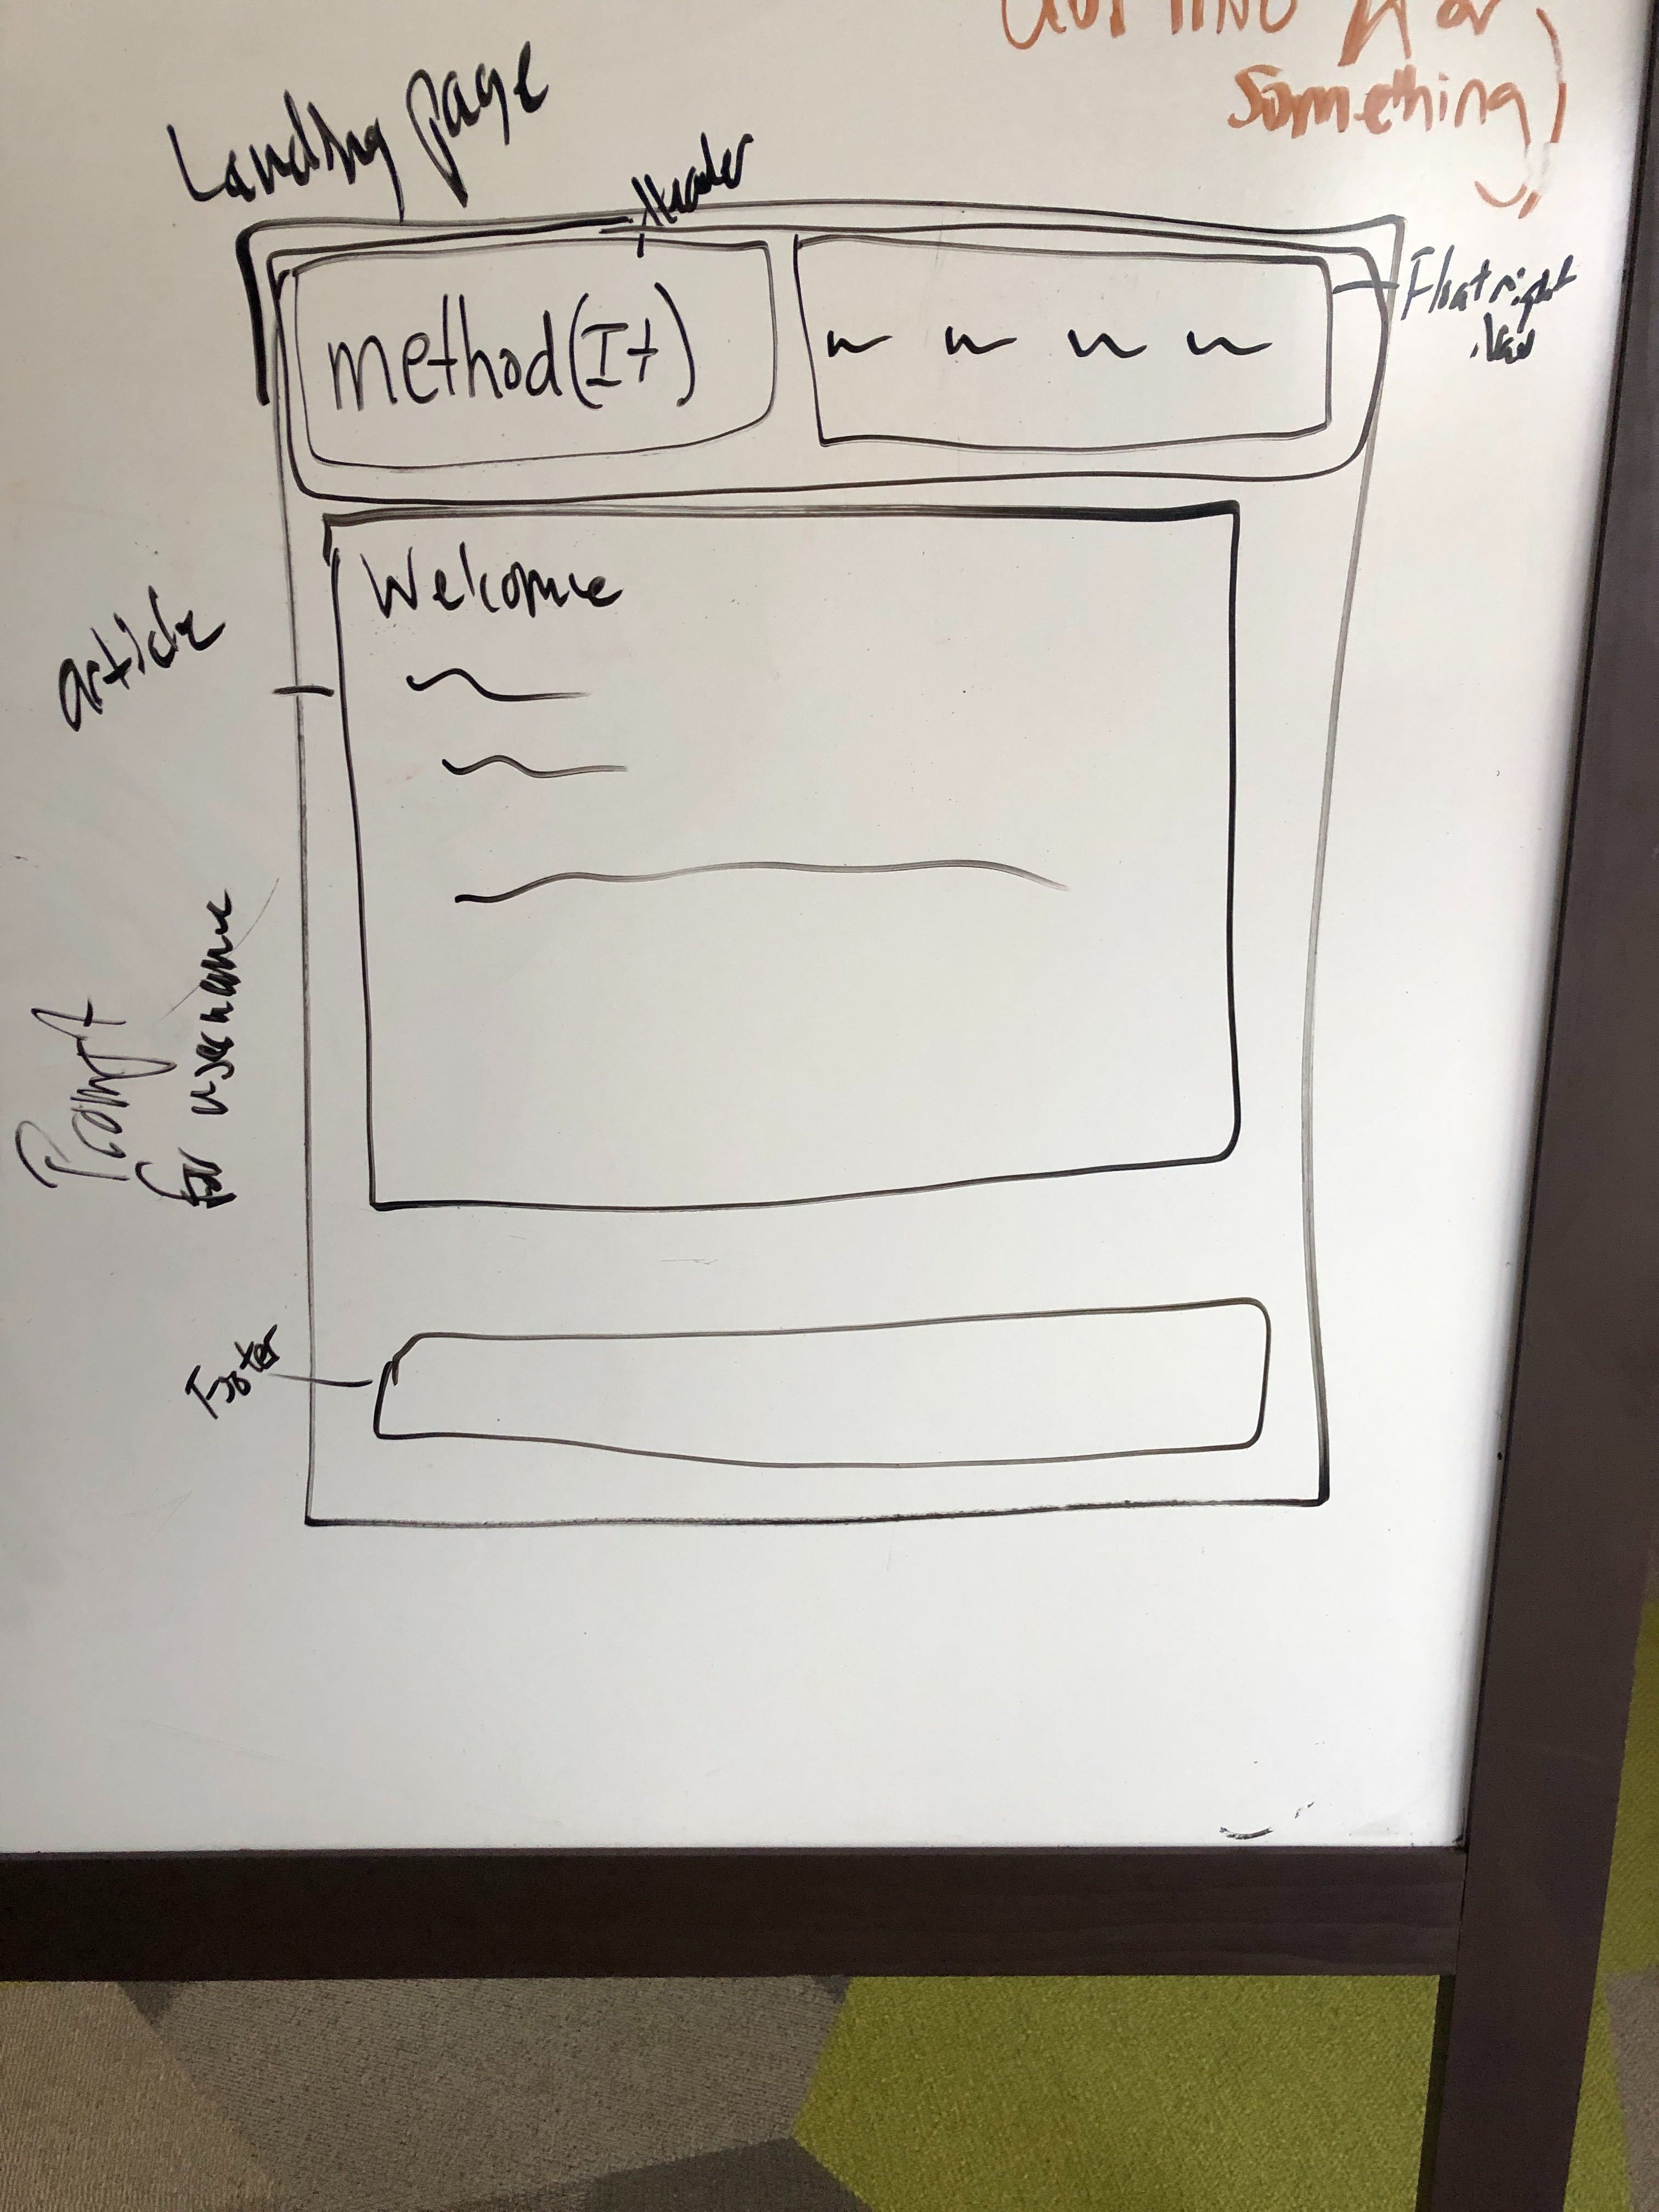 or
something)
Landing page
Header
Float right
Nav
method(It)
Welcome
article
Prompt
for username
Footer